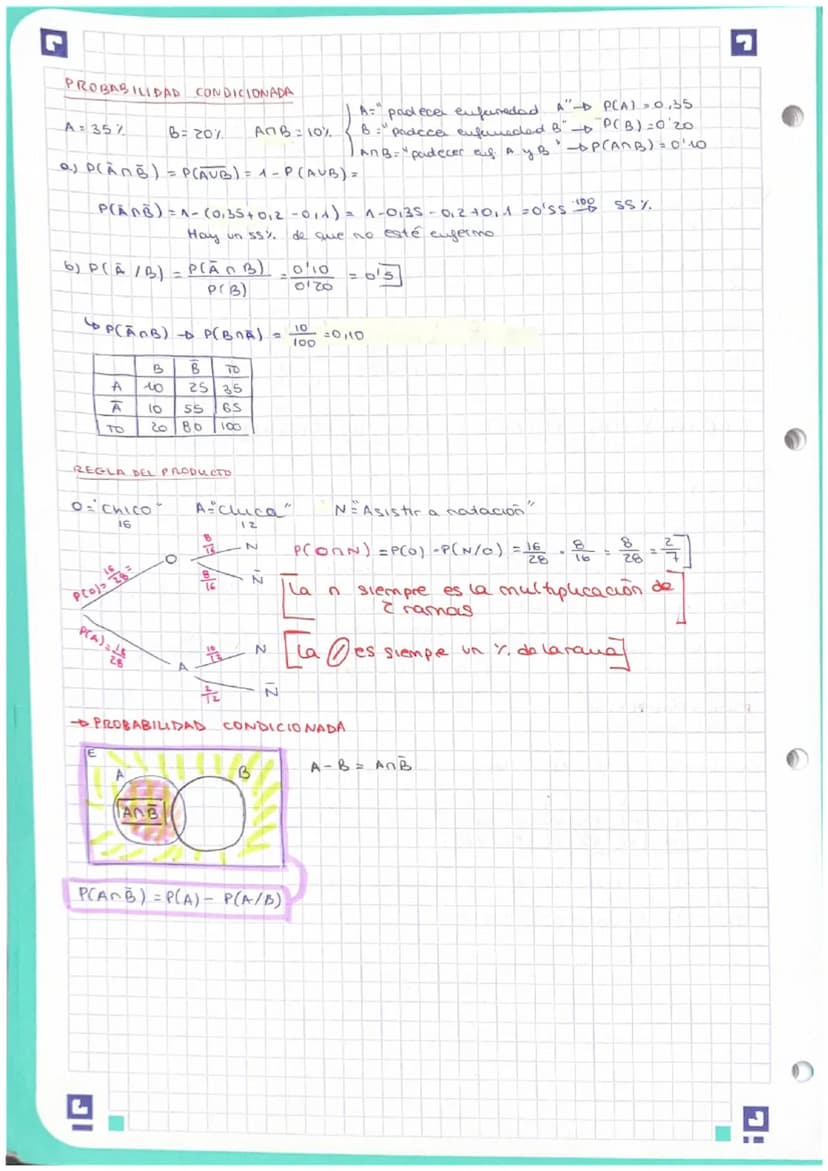 PROBABILIDAD CONDICIONADA
A = 35% B = 20% A∩B = 10%
A = "padecer enfermedad A" → P(A) = 0,35
B = "padecer enfermedad B" → P(B) = 0'20
A∩B = "padecer enf. A y B" → P(A∩B) = 0'10
a) P(Ā∩B̄) = P(A̅U̅B̅) = 1 - P(AUB) =
P(Ā∩B̄) = 1 - (0,35 + 0,2 - 0,1) = 1 - 0,35 - 0,2 + 0,1 = 0'55 ·100→ 55%.
Hay un 55% de que no esté enfermo
b) P(Ā/B) = P(Ā∩B)/P(B) = 0'10/0'20 = 0'5
↳ P(Ā∩B) → P(B∩Ā) = 10/100 = 0,10
B B̄ TO
A 10 25 35
Ā 10 55 65
TO 20 80 100
REGLA DEL PRODUCTO
O = "Chico" A = "Chica" N = "Asistir a natación"
16 12
P(O) = 16/28 = O 8/16 N
8/16 N̄
P(O∩N) = P(O) · P(N/O) = 16/28 · 8/16 = 8/28 = 2/7
[La ∩ siempre es la multiplicación de
2 ramas]
P(A) = 12/28 A 10/12 N
2/12 N̄
[La / es siempre un % de la rama]
→ PROBABILIDAD CONDICIONADA
E
A B
A∩B̄
A - B = A∩B̄
P(A∩B̄) = P(A) - P(A/B)